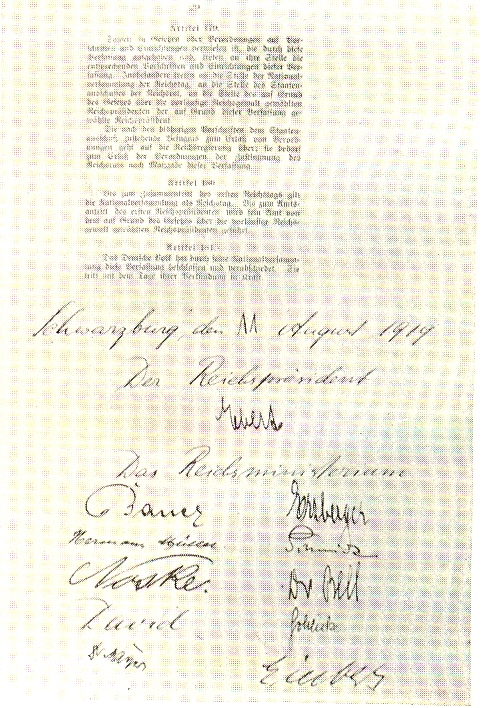 Artikel 179.
Soweit in Gesetzen oder Verordnungen auf Vor-
schriften und Einrichtungen verwiesen ist, die durch diese
Verfassung aufgehoben sind, treten an ihre Stelle die
entsprechenden Vorschriften und Einrichtungen dieser Ver-
fassung. Insbesondere treten an die Stelle der National-
versammlung der Reichstag, an die Stelle des Staaten-
ausschusses der Reichsrat, an die Stelle des auf Grund
des Gesetzes über die vorläufige Reichsgewalt gewählten
Reichspräsidenten der auf Grund dieser Verfassung ge-
wählte Reichspräsident.
Die nach den bisherigen Vorschriften dem Staaten-
ausschuß zustehende Befugnis zum Erlaß von Verord-
nungen geht auf die Reichsregierung über; sie bedarf
zum Erlaß der Verordnungen der Zustimmung des
Reichsrats nach Maßgabe dieser Verfassung.
Artikel 180.
Bis zum Zusammentritt des ersten Reichstags gilt
die Nationalversammlung als Reichstag. Bis zum Amts-
antritt des ersten Reichspräsidenten wird sein Amt von
dem auf Grund des Gesetzes über die vorläufige Reichs-
gewalt gewählten Reichspräsidenten geführt.
Artikel 181.
Das Deutsche Volk hat durch seine Nationalversamm-
lung diese Verfassung beschlossen und verabschiedet. Sie
tritt mit dem Tage ihrer Verkündung in Kraft.
Schwarzburg, den 11 August 1919
Der Reichspräsident
Ebert
Das Reichsministerium
Bauer
Erzberger
Hermann Müller
Schmidt
Noske.
Dr Bell
David
Dr Mayer